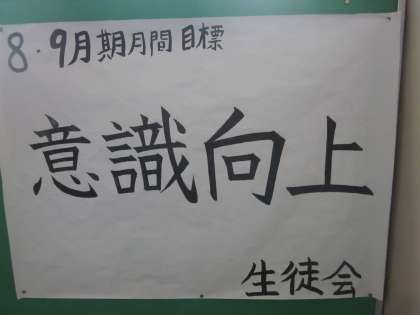 8・9月期月間目標
意識向上
生徒会